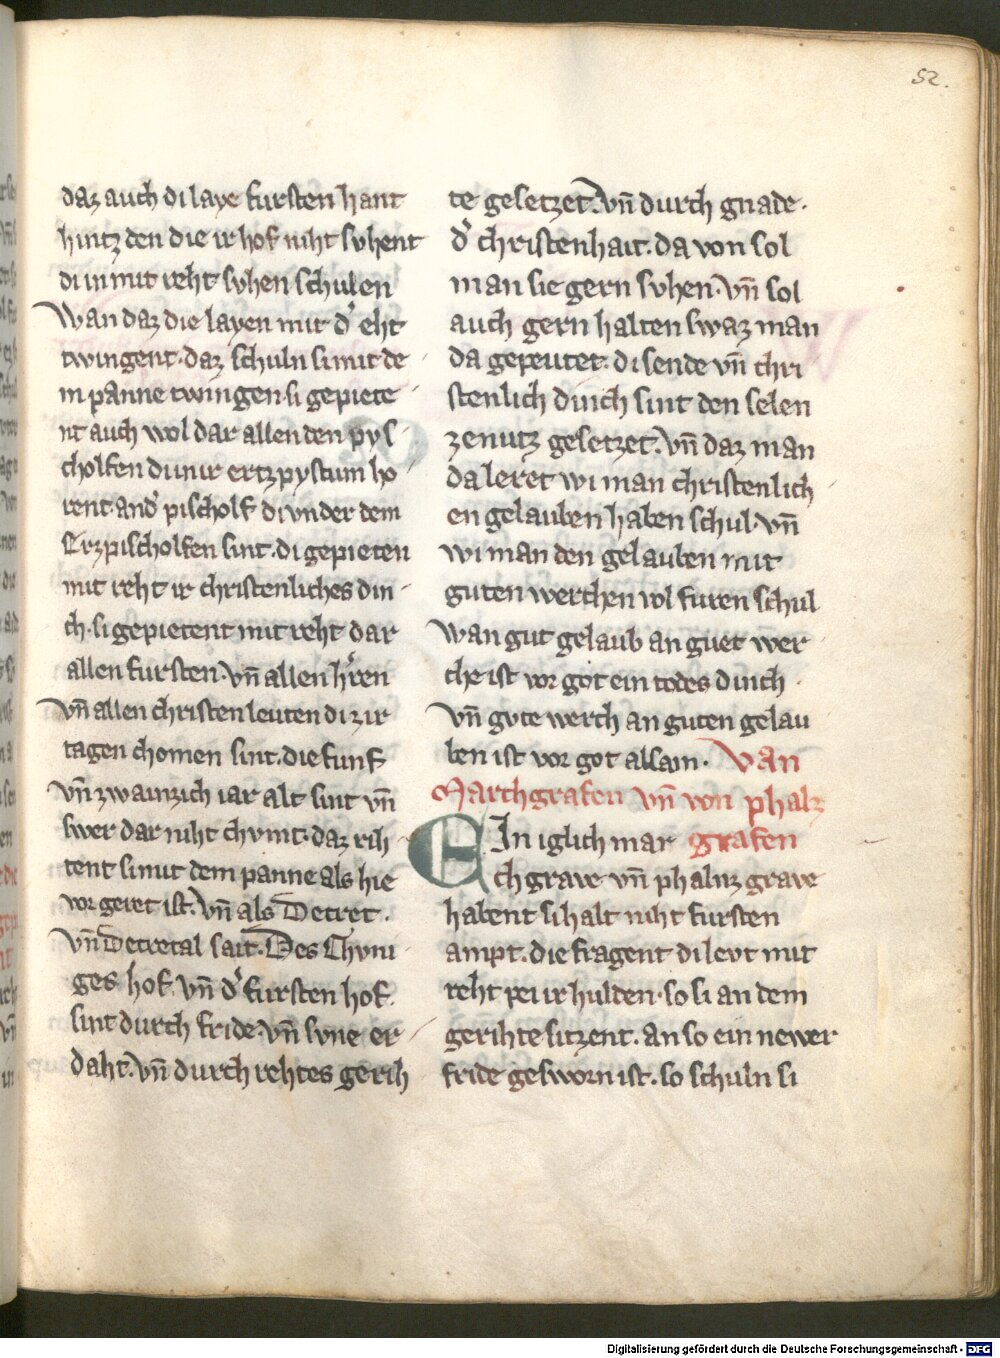 52.
daz auch di laye fursten hant
hintz den die ir hof niht svhent
di in mit reht svhen schulen
Wan daz die layen mit d̾ eht
twingent. daz schuln si mit de
m panne twingen. si gepiete
nt auch wol dar allen den pys
cholfen di in ir ertzpystum ho
rent. and̾ pischolf di vnder dem
Erzpischolfen sint. di gepieten
mit reht ir christenliches din
ch. si gepietent mit reht dar
allen fursten. vn̄ allen h̾ren
vn̄ allen christen leuten di zir
tagen chomen sint. die funf
vn̄ zwainzich iar alt sint vn̄
swer dar niht chvmt. daz rih
tent si mit dem panne als hie
vor geret ist. vn̄ als Decret.
vn̄ Decretal sait. Des Chvni
ges hof. vn̄ d̾ fursten hof.
sint durch fride. vn̄ svne er
daht. vn̄ durch rehtes gerih
te gesetzet. vn̄ durch gnade.
d̾ christenhait. da von sol
man sie gern svhen. vn̄ sol
auch gern halten swaz man
da gepeutet. di sende vn̄ chri
stenlich dinich sint den selen
ze nutz gesetzet. vn̄ daz man
da leret wi man christenlich
en gelauben haben schul. vn̄
wi man den gelauben mit
guten werchen vol furen schul
wan gut gelaub an guet wer
che ist vor got ein todes dinch
vn̄ gvte werch an guten gelau
ben ist vor got alsam. Van
Marchgrafen vn̄ von phalz
grafen
EIn iglich mar
chgrave vn̄ phalnz grave
habent si halt niht fursten
ampt. die fragent di levt mit
reht pei ir hulden. so si an dem
gerihte sitzent. an so ein newer
fride gesworn ist. so schuln si
Digitalisierung gefördert durch die Deutsche Forschungsgemeinschaft - DFG